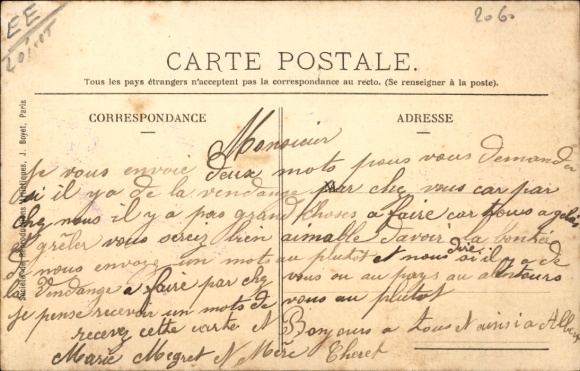 EE
206
CARTE POSTALE.
Tous les pays étrangers n'acceptent pas la correspondance au recto. (Se renseigner à la poste).
CORRESPONDANCE
ADRESSE
J. Boyet, Paris
Monsieur
Je vous envoie deux mots pous vous demander
si il y a de la vendange par chez vous car par
chez nous il y a pas grand choses a faire car tous a gelé
et grêler vous serez bien aimable d'avoir la bontée
de nous envoye un mot au plutot et nous dire si il y a de
la vendange a faire par chez vous ou au pays au alentours
je pense recevoir un mots de vous au plutot
recevez cette carte Bonjours a tous
Marie Megret Mère Theret